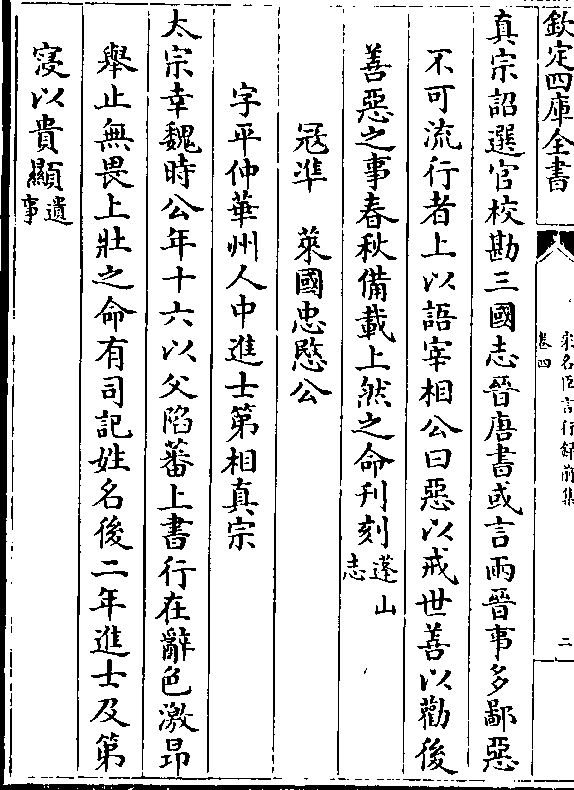 欽定四庫全書
宋名臣言行錄前集
卷四
二
真宗詔選官校勘三國志晉唐書或言兩晉事多鄙惡
不可流行者上以語宰相公曰惡以戒世善以勸後
善惡之事春秋備載上然之命刋刻蓬山志
冦準 萊國忠愍公
字平仲華州人中進士第相真宗
太宗幸魏時公年十六以父陷蕃上書行在辭色激昻
舉止無畏上壯之命有司記姓名後二年進士及第
寖以貴顯遺事